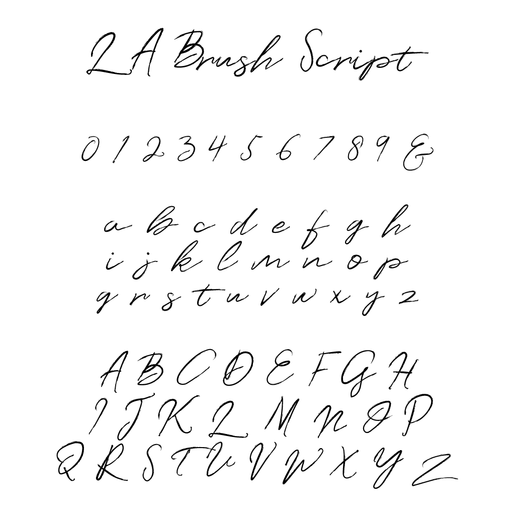 LA Brush Script
0 1 2 3 4 5 6 7 8 9 &
a b c d e f g h
i j k l m n o p
q r s t u v w x y z
A B C D E F G H
I J K L M N O P
Q R S T U V W X Y Z